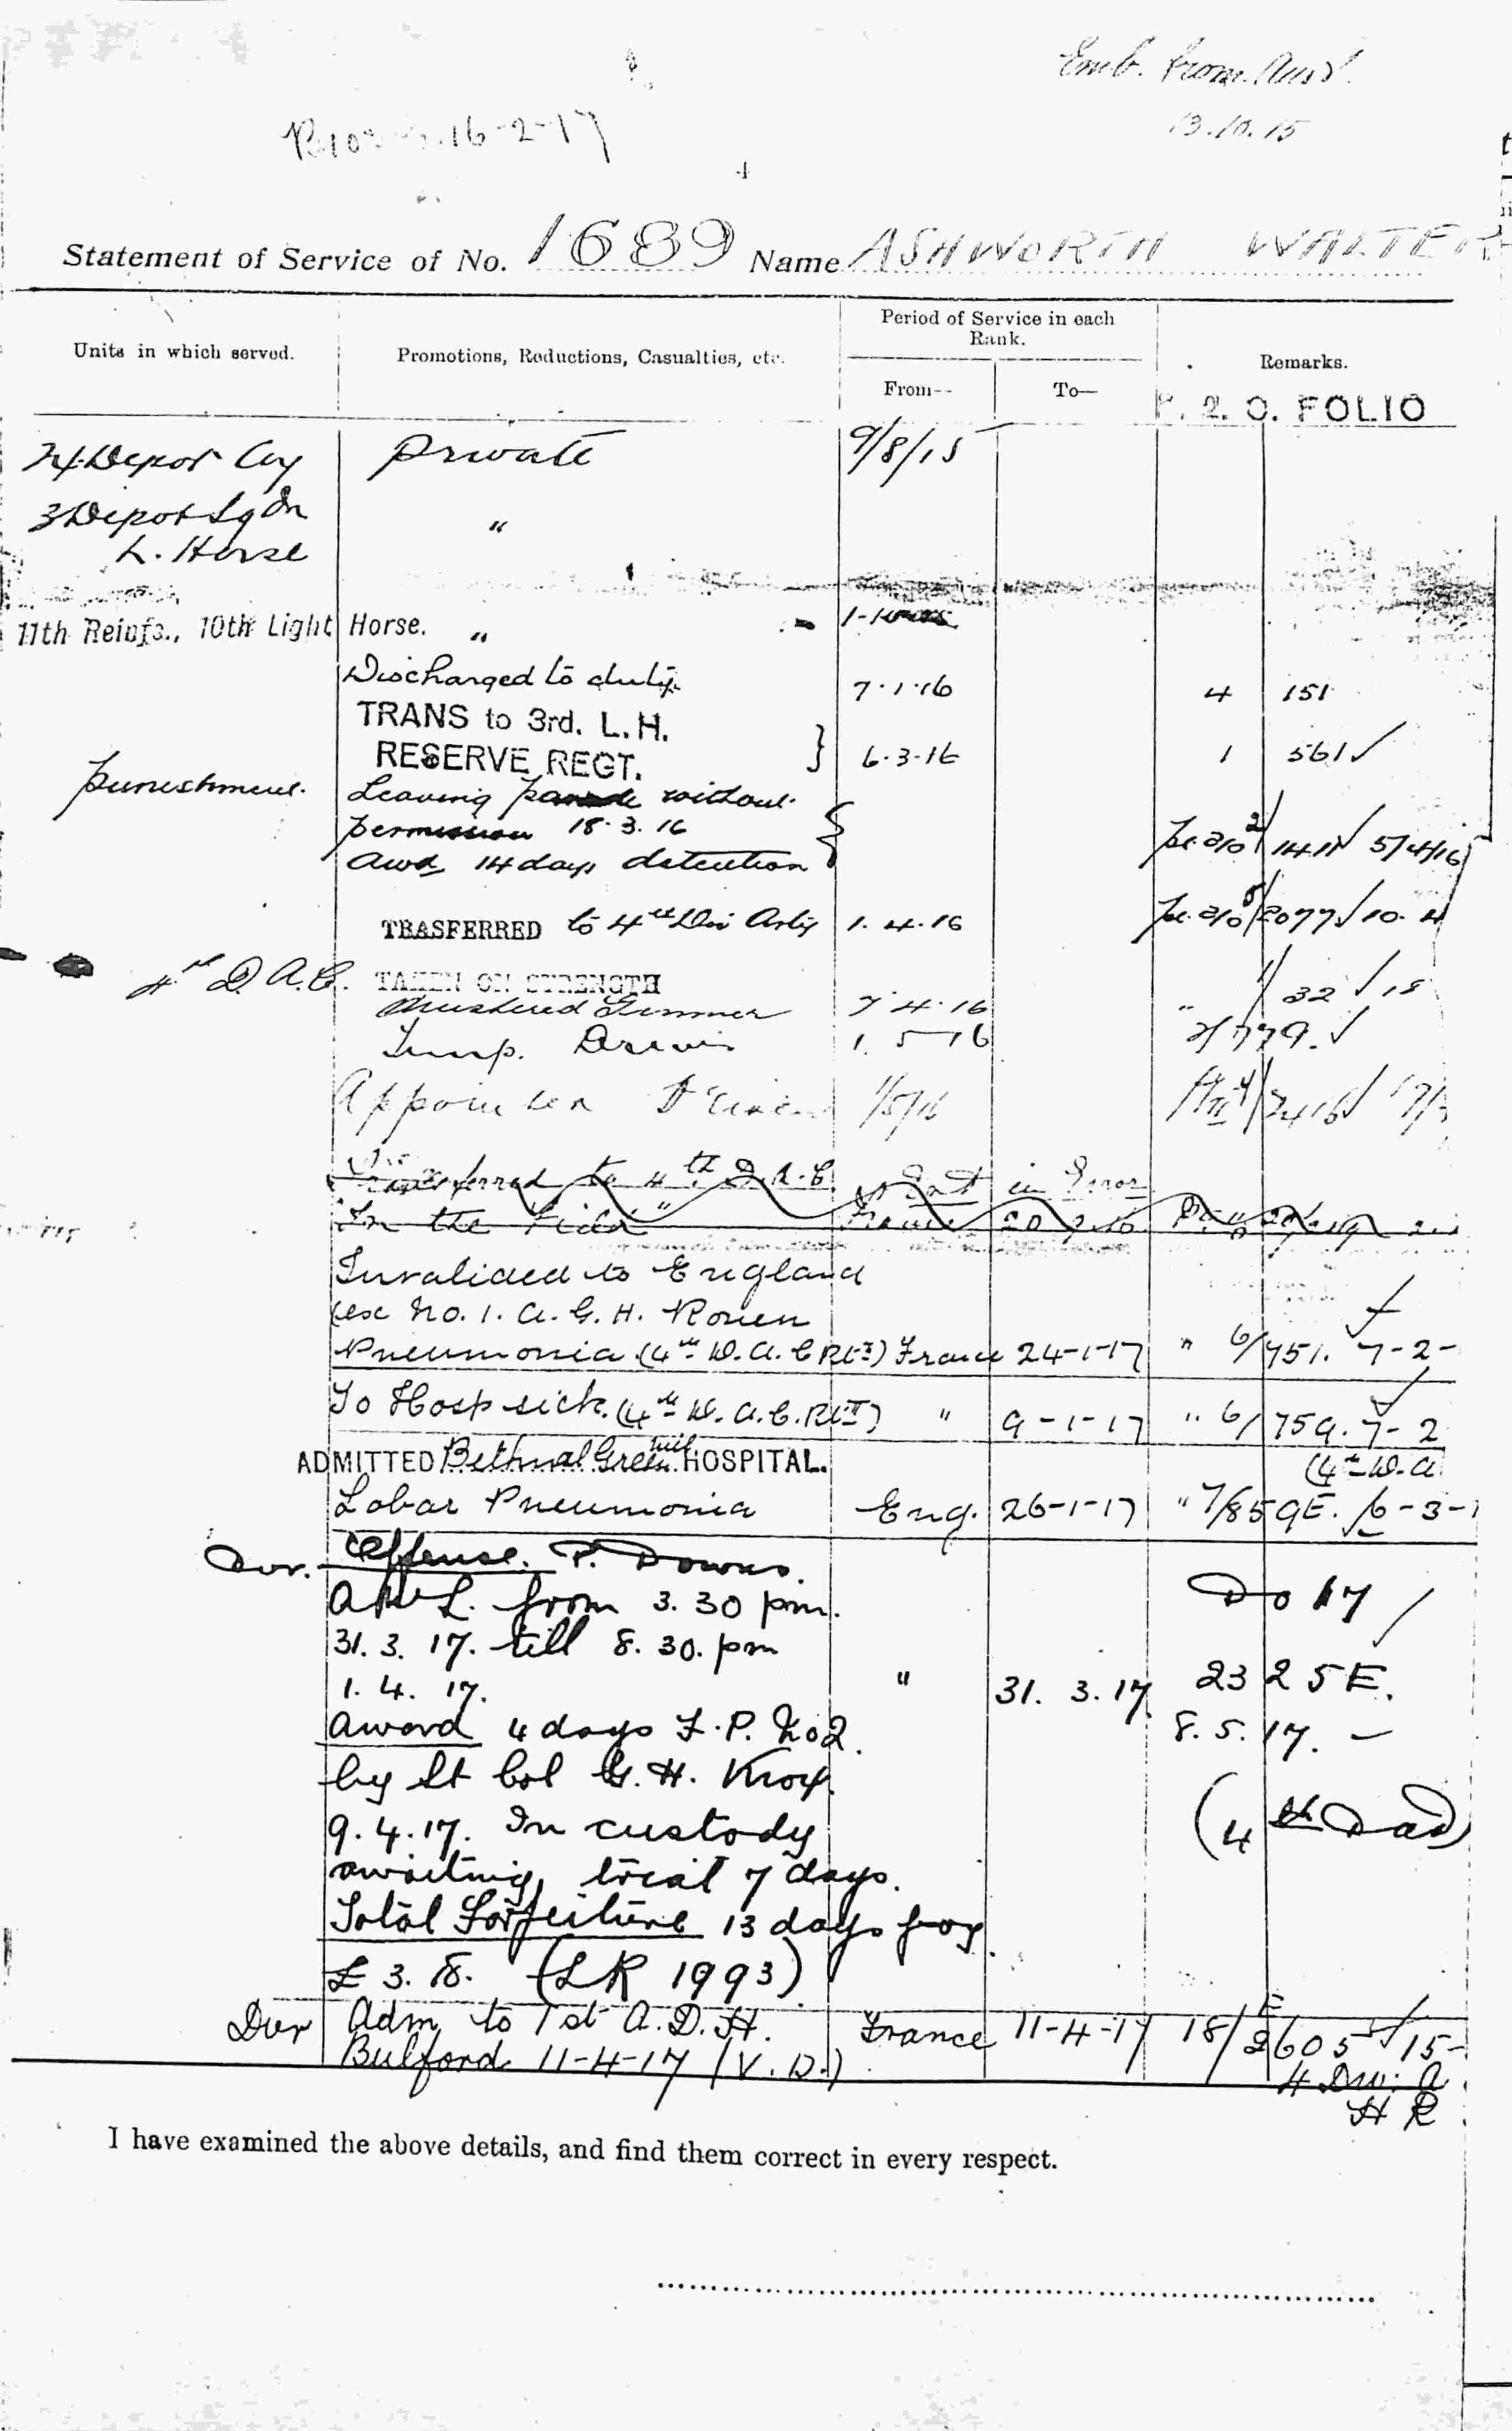 Emb. from. Aust.
13.10.15
16-2-17
4
Statement of Service of No. 1689 Name ASHWORTH WALTER
Units in which served. Promotions, Reductions, Casualties, etc. Period of Service in each Rank. Remarks.
From-- To—
P. 2. O. FOLIO
24 Depot Coy Private 9/8/15
3 Depot Sqdn "
L. Horse
11th Reinfs., 10th Light Horse. "
Discharged to duty. 7.1.16 4 151
TRANS to 3rd. L.H.
RESERVE REGT. } 6.3.16 1 561 ✓
Punishment. Leaving parade without
permission 18.3.16
Awd 14 days detention 2/1411 ✓ 5/4/16
TRASFERRED to 4th Div Arty 1.4.16 5/2077 ✓ 10.4
4th D.A.C. TAKEN ON STRENGTH
Mustered Gunner 7.4.16 " 1/32 ✓ 18
Temp. Driver 1.5.16 2/779. ✓
Appointed Driver 1/5/16 4/2416 ✓
Transferred to 4th D.A.C. Ent in Error
"In the Field" France 20
Invalided to England
(ex No. 1. A.G.H. Rouen
Pneumonia (4th D.A.C. RLII) France 24-1-17 " 6/751. 7-2-
To Hosp sick. (4th D.A.C. RLII) " 9-1-17 " 6/759. 7-2
ADMITTED Bethnal Green Mil HOSPITAL. (4th D.A
Lobar Pneumonia Eng. 26-1-17 " 7/859E. 6-3-1
Dvr. Offense. P. Downs.
AWL. from 3.30 pm. Do 17 ✓
31.3.17. till 8.30. pm
1.4.17. " 31.3.17 2325E.
Award 4 days F.P. No2. 8.5.17. –
by Lt Col G.H. Knox.
9.4.17. In custody (4th DAC)
awaiting trial 7 days.
Total Forfeiture 13 days pay.
£3.18. (LR 1993)
Dvr Adm to 1st A.D.H. France 11-4-17 18/2605E ✓ 15-
Bulford 11-4-17 (V.D.) 4 Div: A
H R
I have examined the above details, and find them correct in every respect.